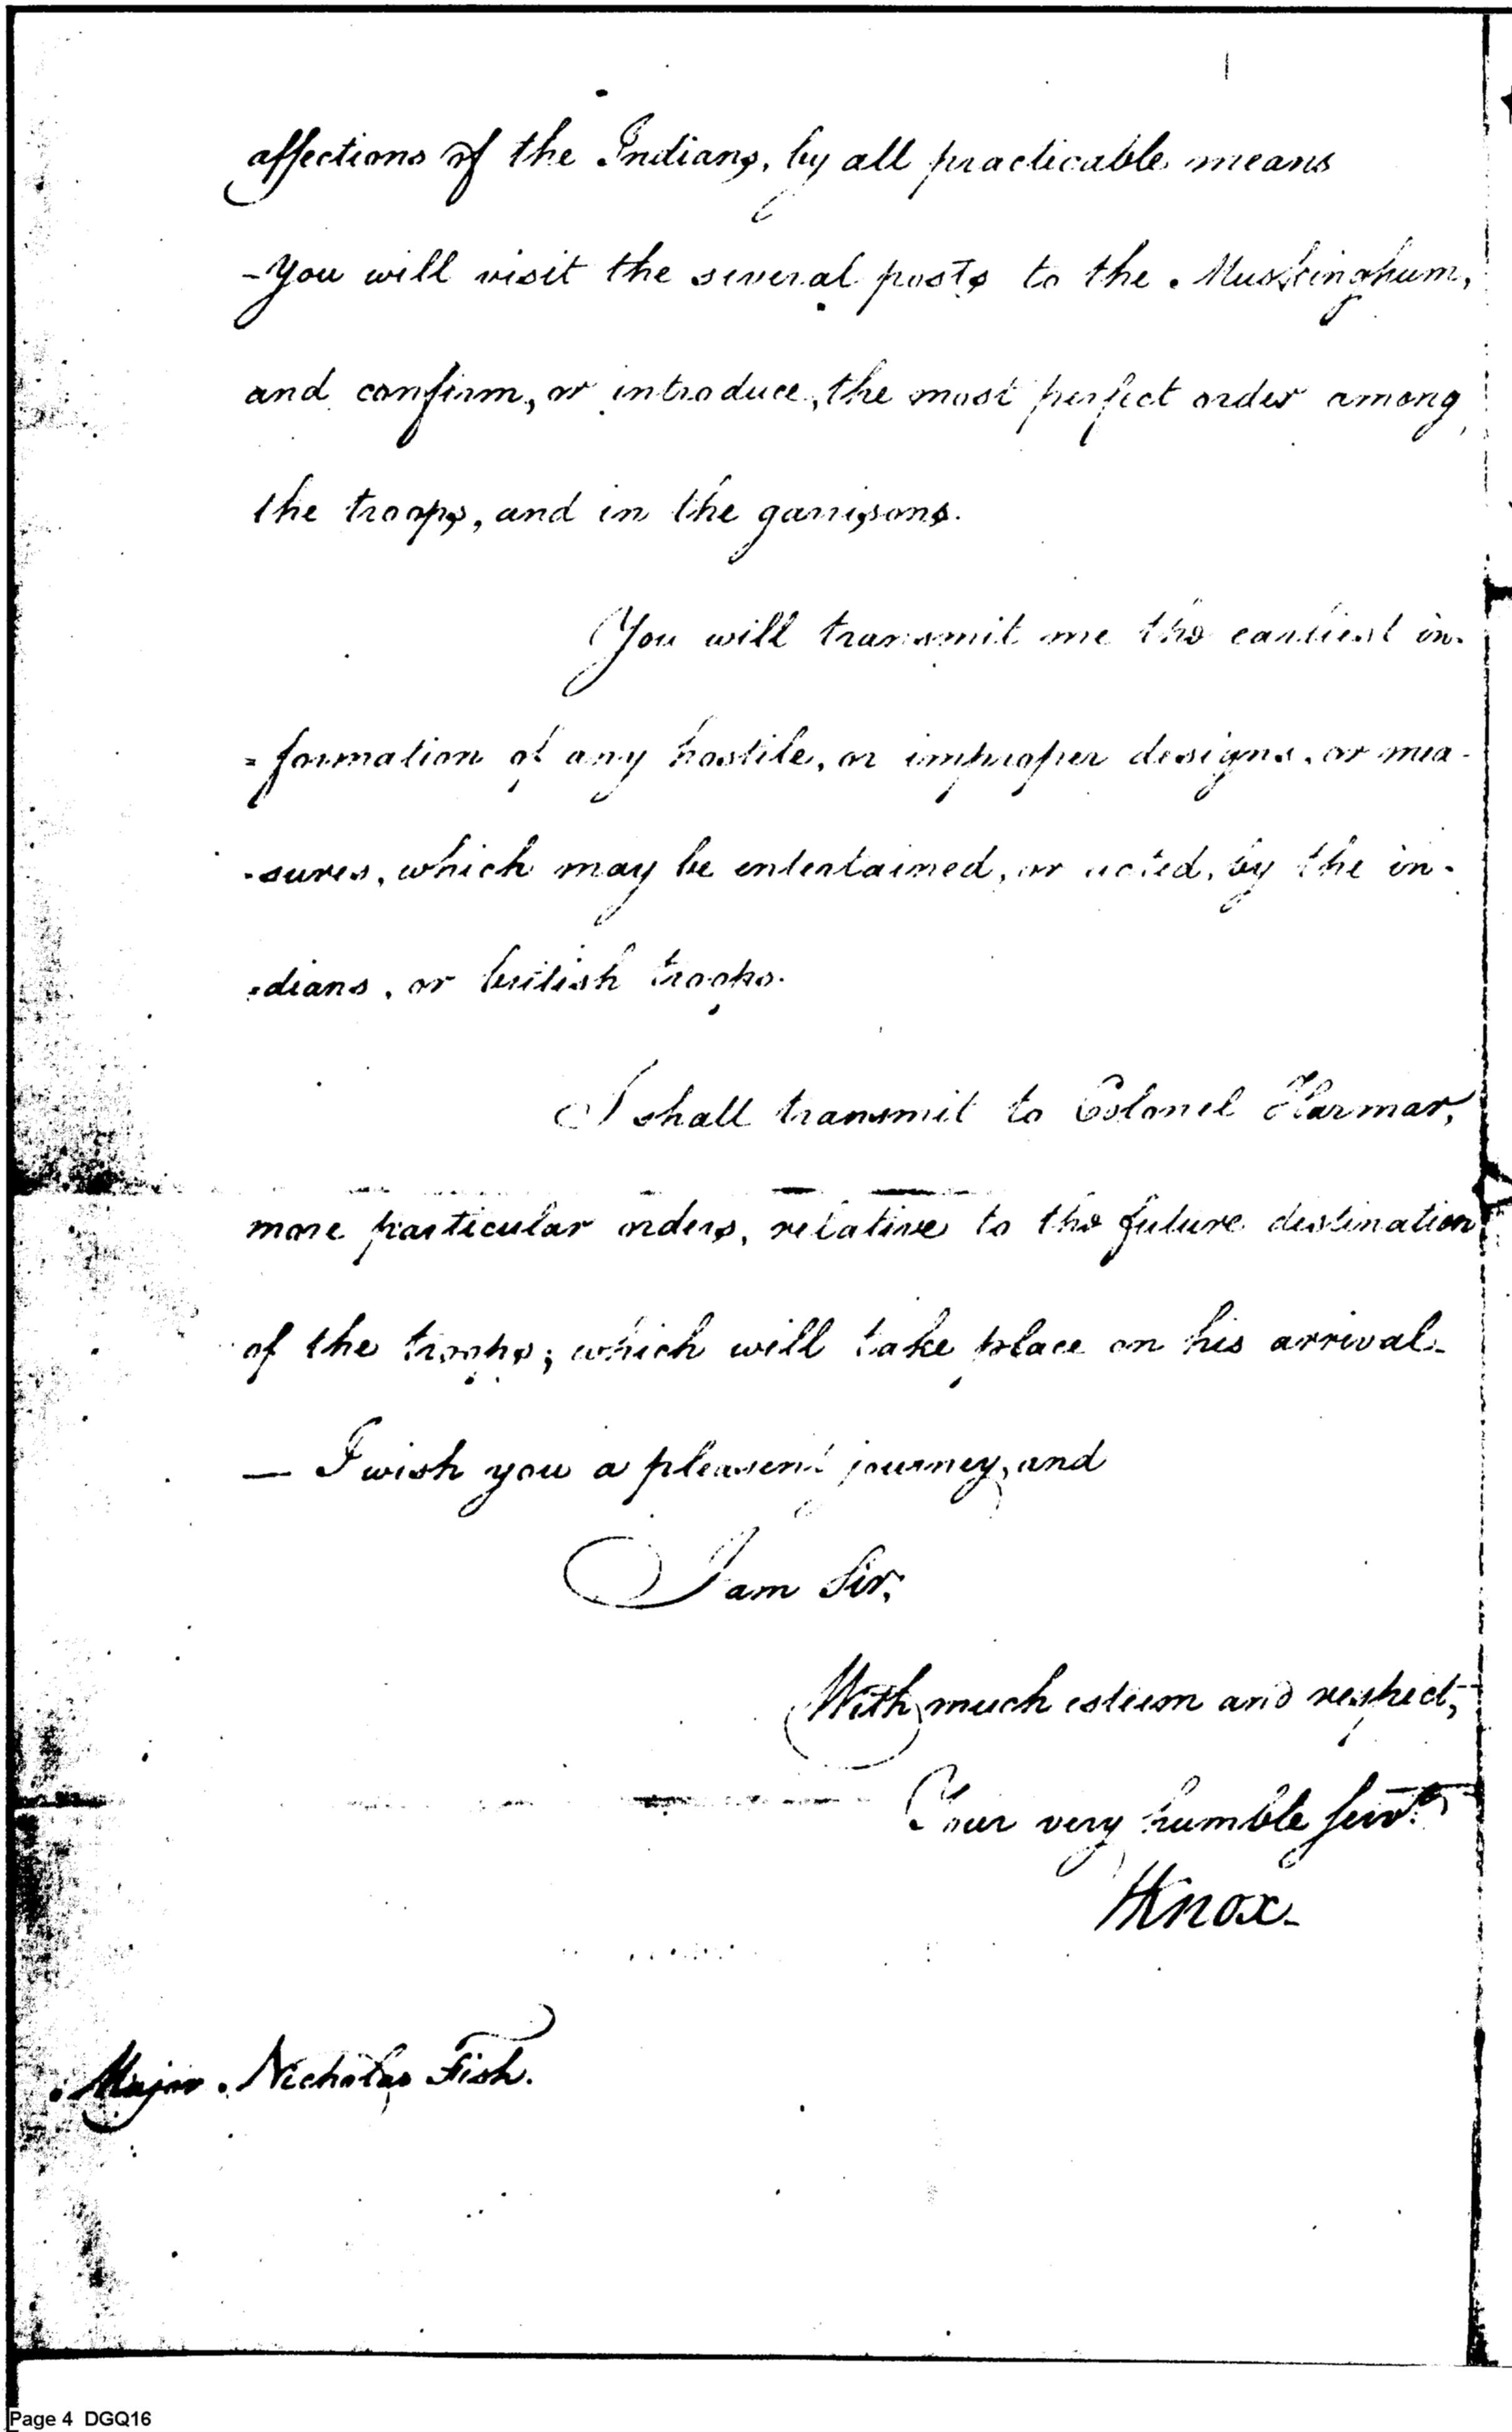 affections of the Indians, by all practicable means
- You will visit the several posts to the Muskinghum,
and confirm, or introduce, the most perfect order among
the troops, and in the garrisons.
You will transmit me the earliest in-
=formation of any hostile, or improper designs, or mea-
-sures, which may be entertained, or acted, by the in-
-dians, or british troops.
I shall transmit to Colonel Harmar,
more particular orders, relative to the future destination
of the troops; which will take place on his arrival-
— I wish you a pleasent journey, and
I am Sir,
With much esteem and respect,
Your very humble servt
HKnox-
Major Nicholas Fish.
Page 4 DGQ16